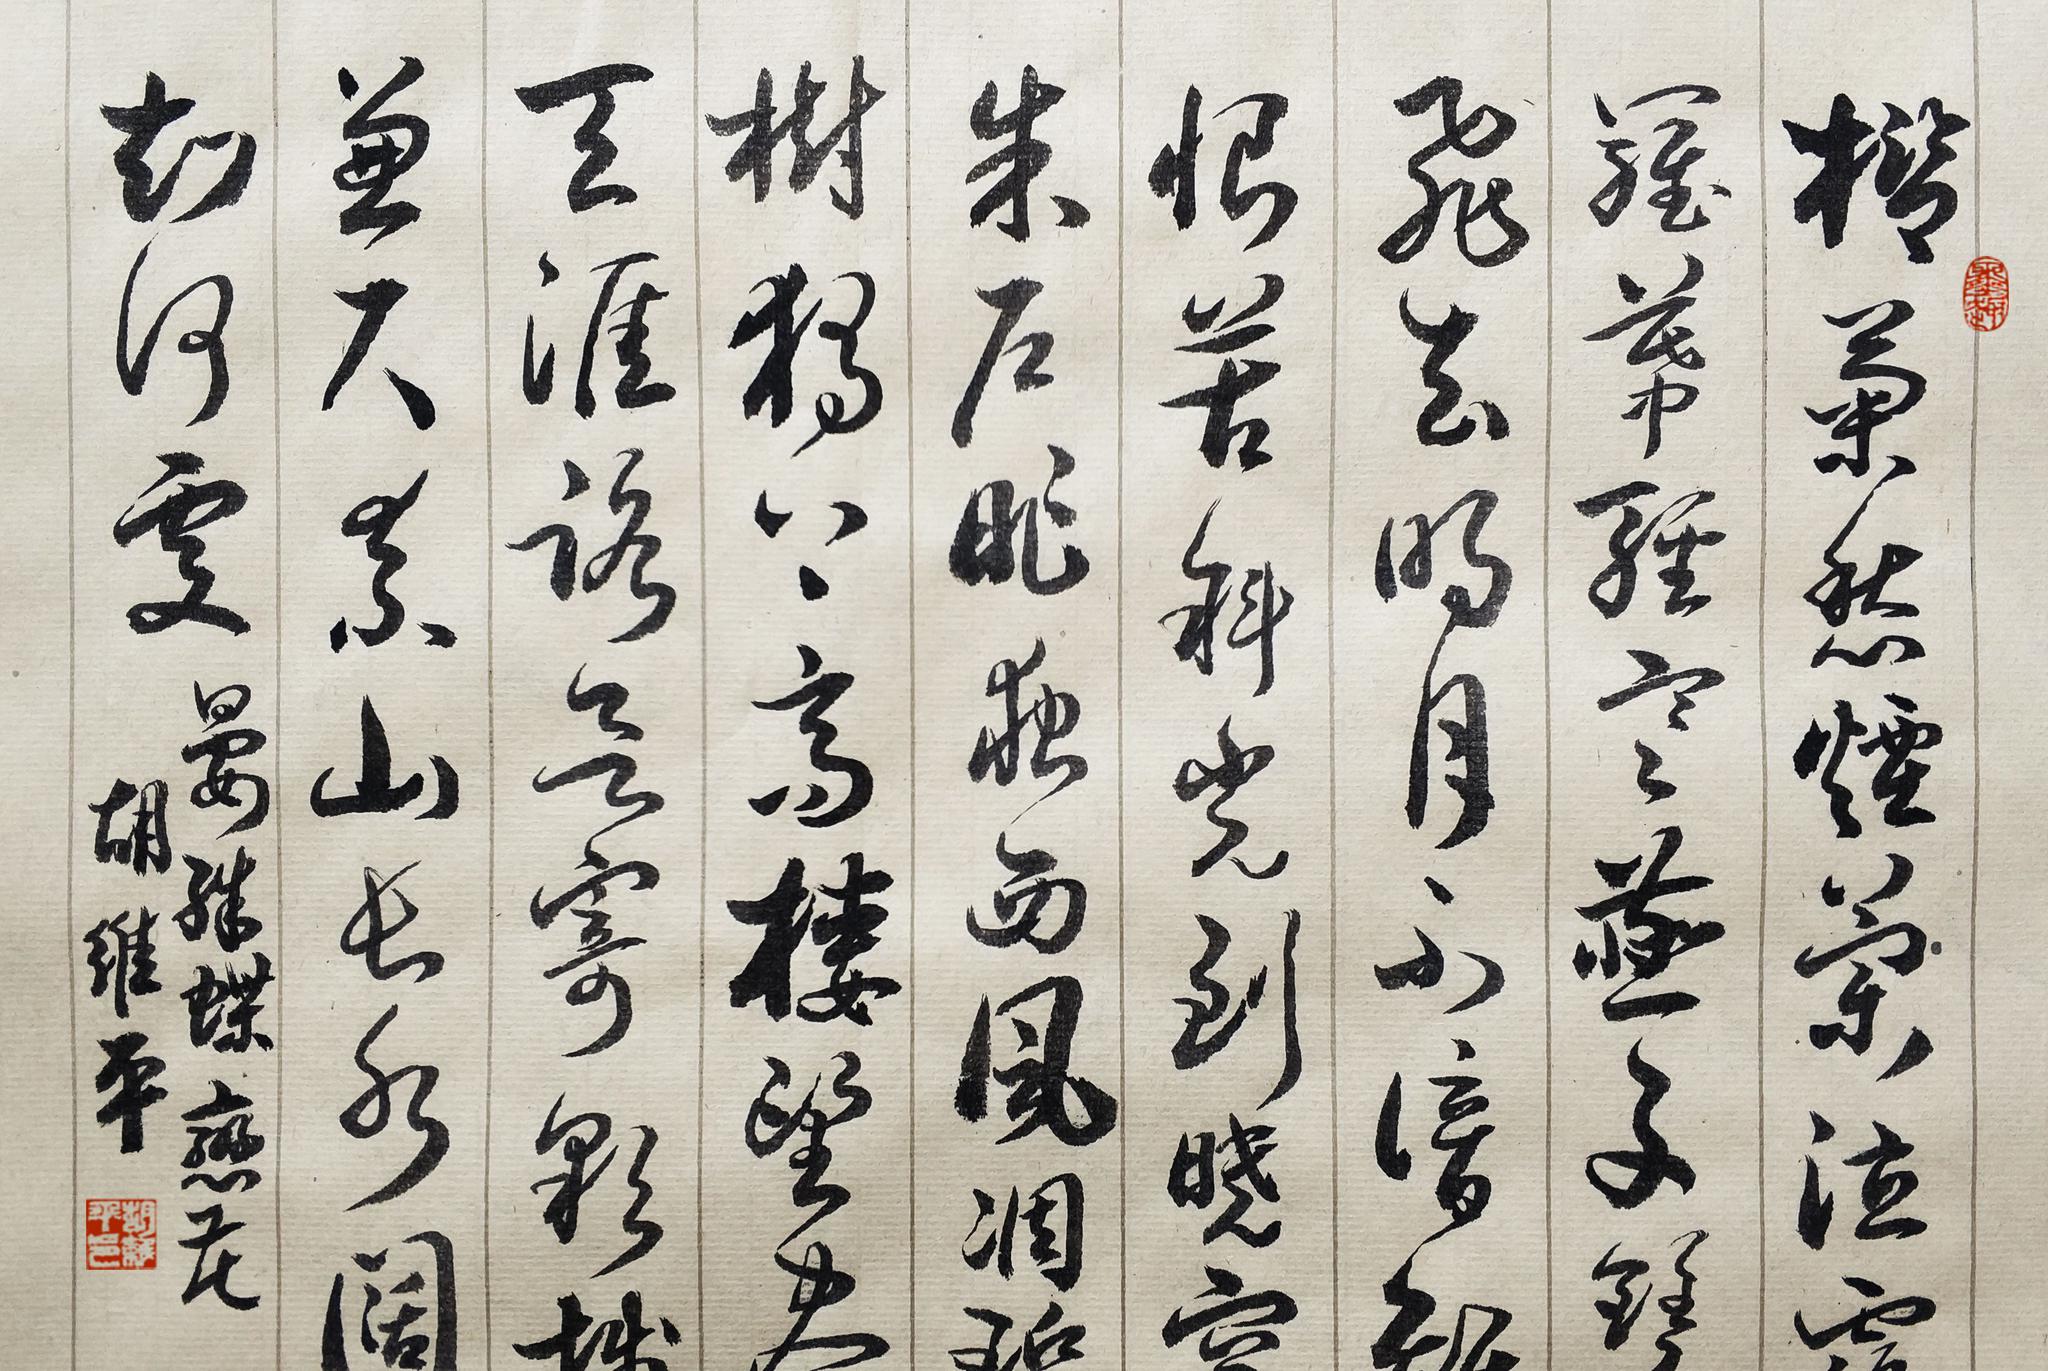 檻菊愁煙蘭泣露
羅幕輕寒燕子雙
飛去明月不諳離
恨苦斜光到曉穿
朱戶昨夜西風凋碧
樹獨上高樓望盡
天涯路欲寄彩
兼尺素山長水闊
知何處
晏殊蝶戀花
胡維平